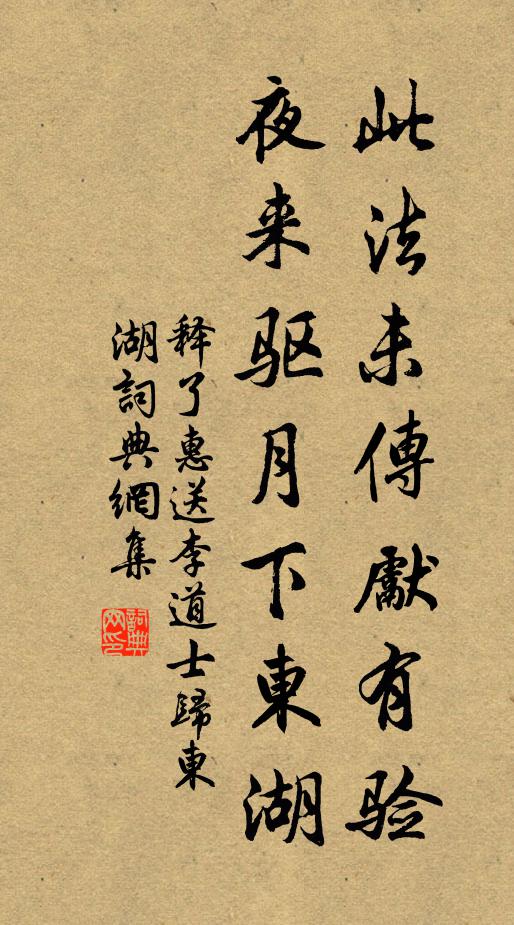 此法未傳獻有验
夜来驱月下東湖
释了惠送李道士歸東
湖詞典網集
詞典网印